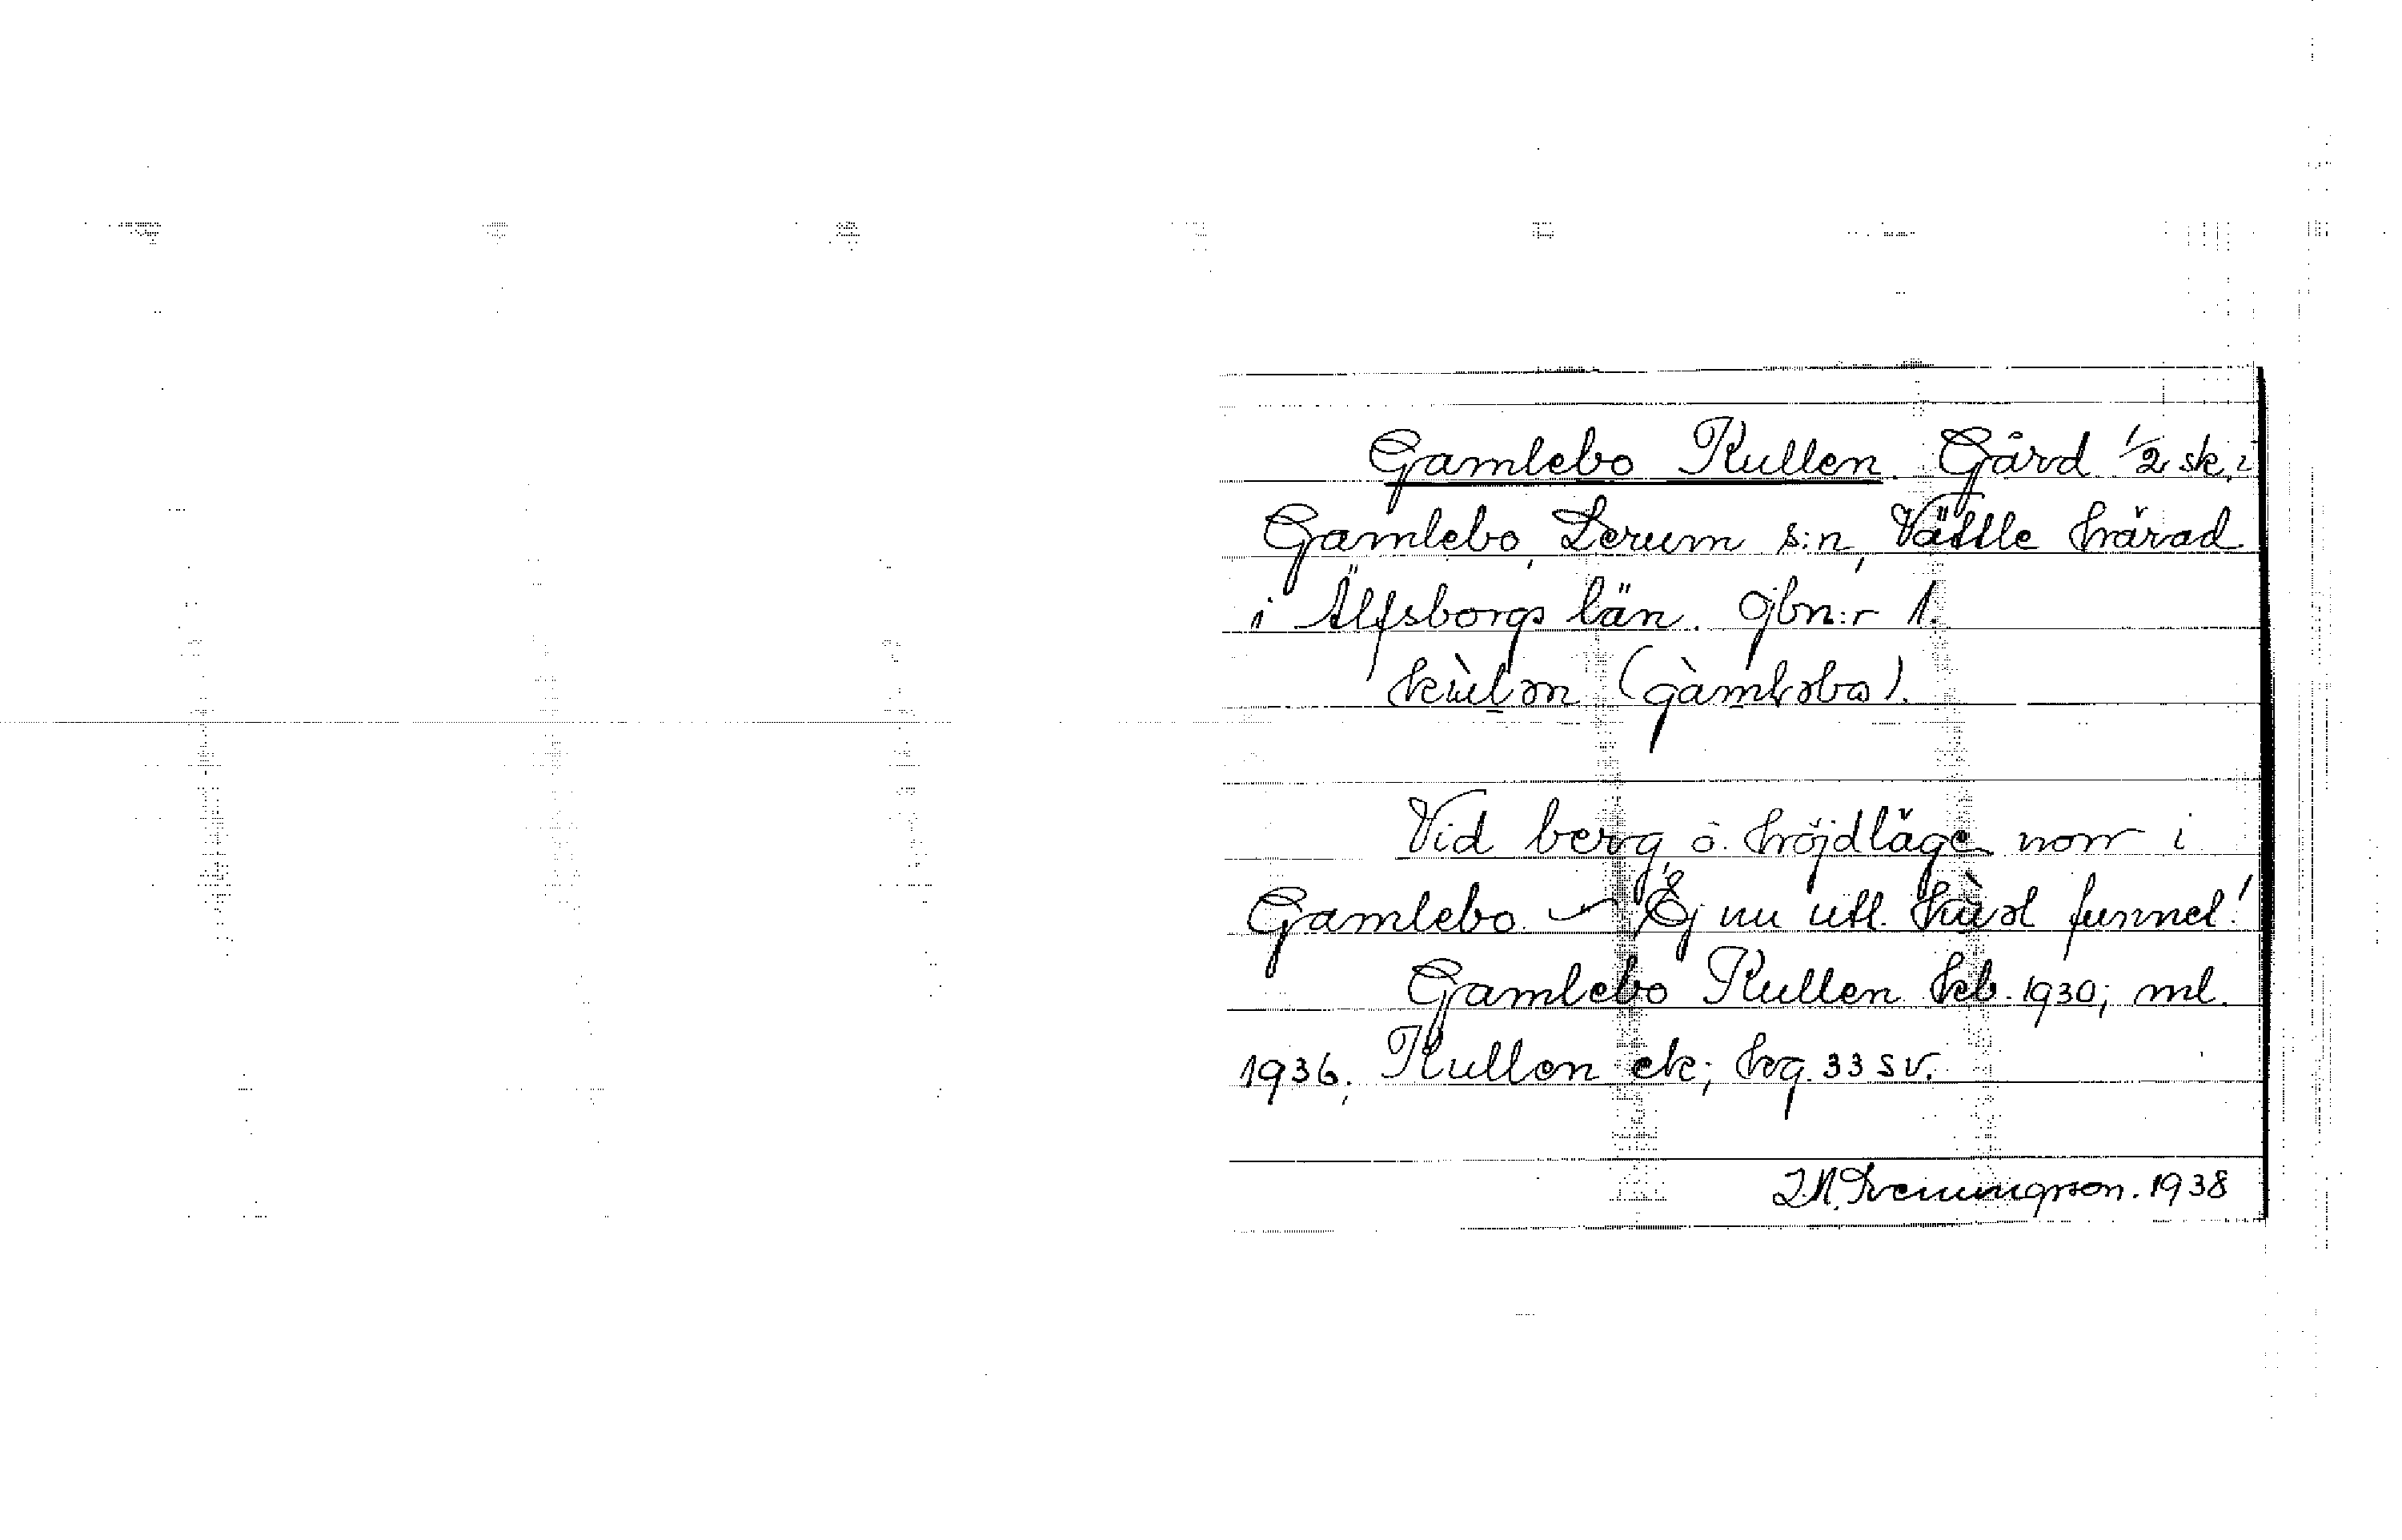 Gamlebo Kullen. Gård 1/2 sk, i
Gamlebo, Lerum s:n, Vättle härad
i Älfsborgs län. Gbn:r 1.
kùlən (gàmləbo).
Vid berg o. höjdläge norr i
Gamlebo. – Ej nu utl. funnel!
Gamlebo Kullen kb. 1930; ml.
1936. Kullen ek; hrg. 33 SV.
1938